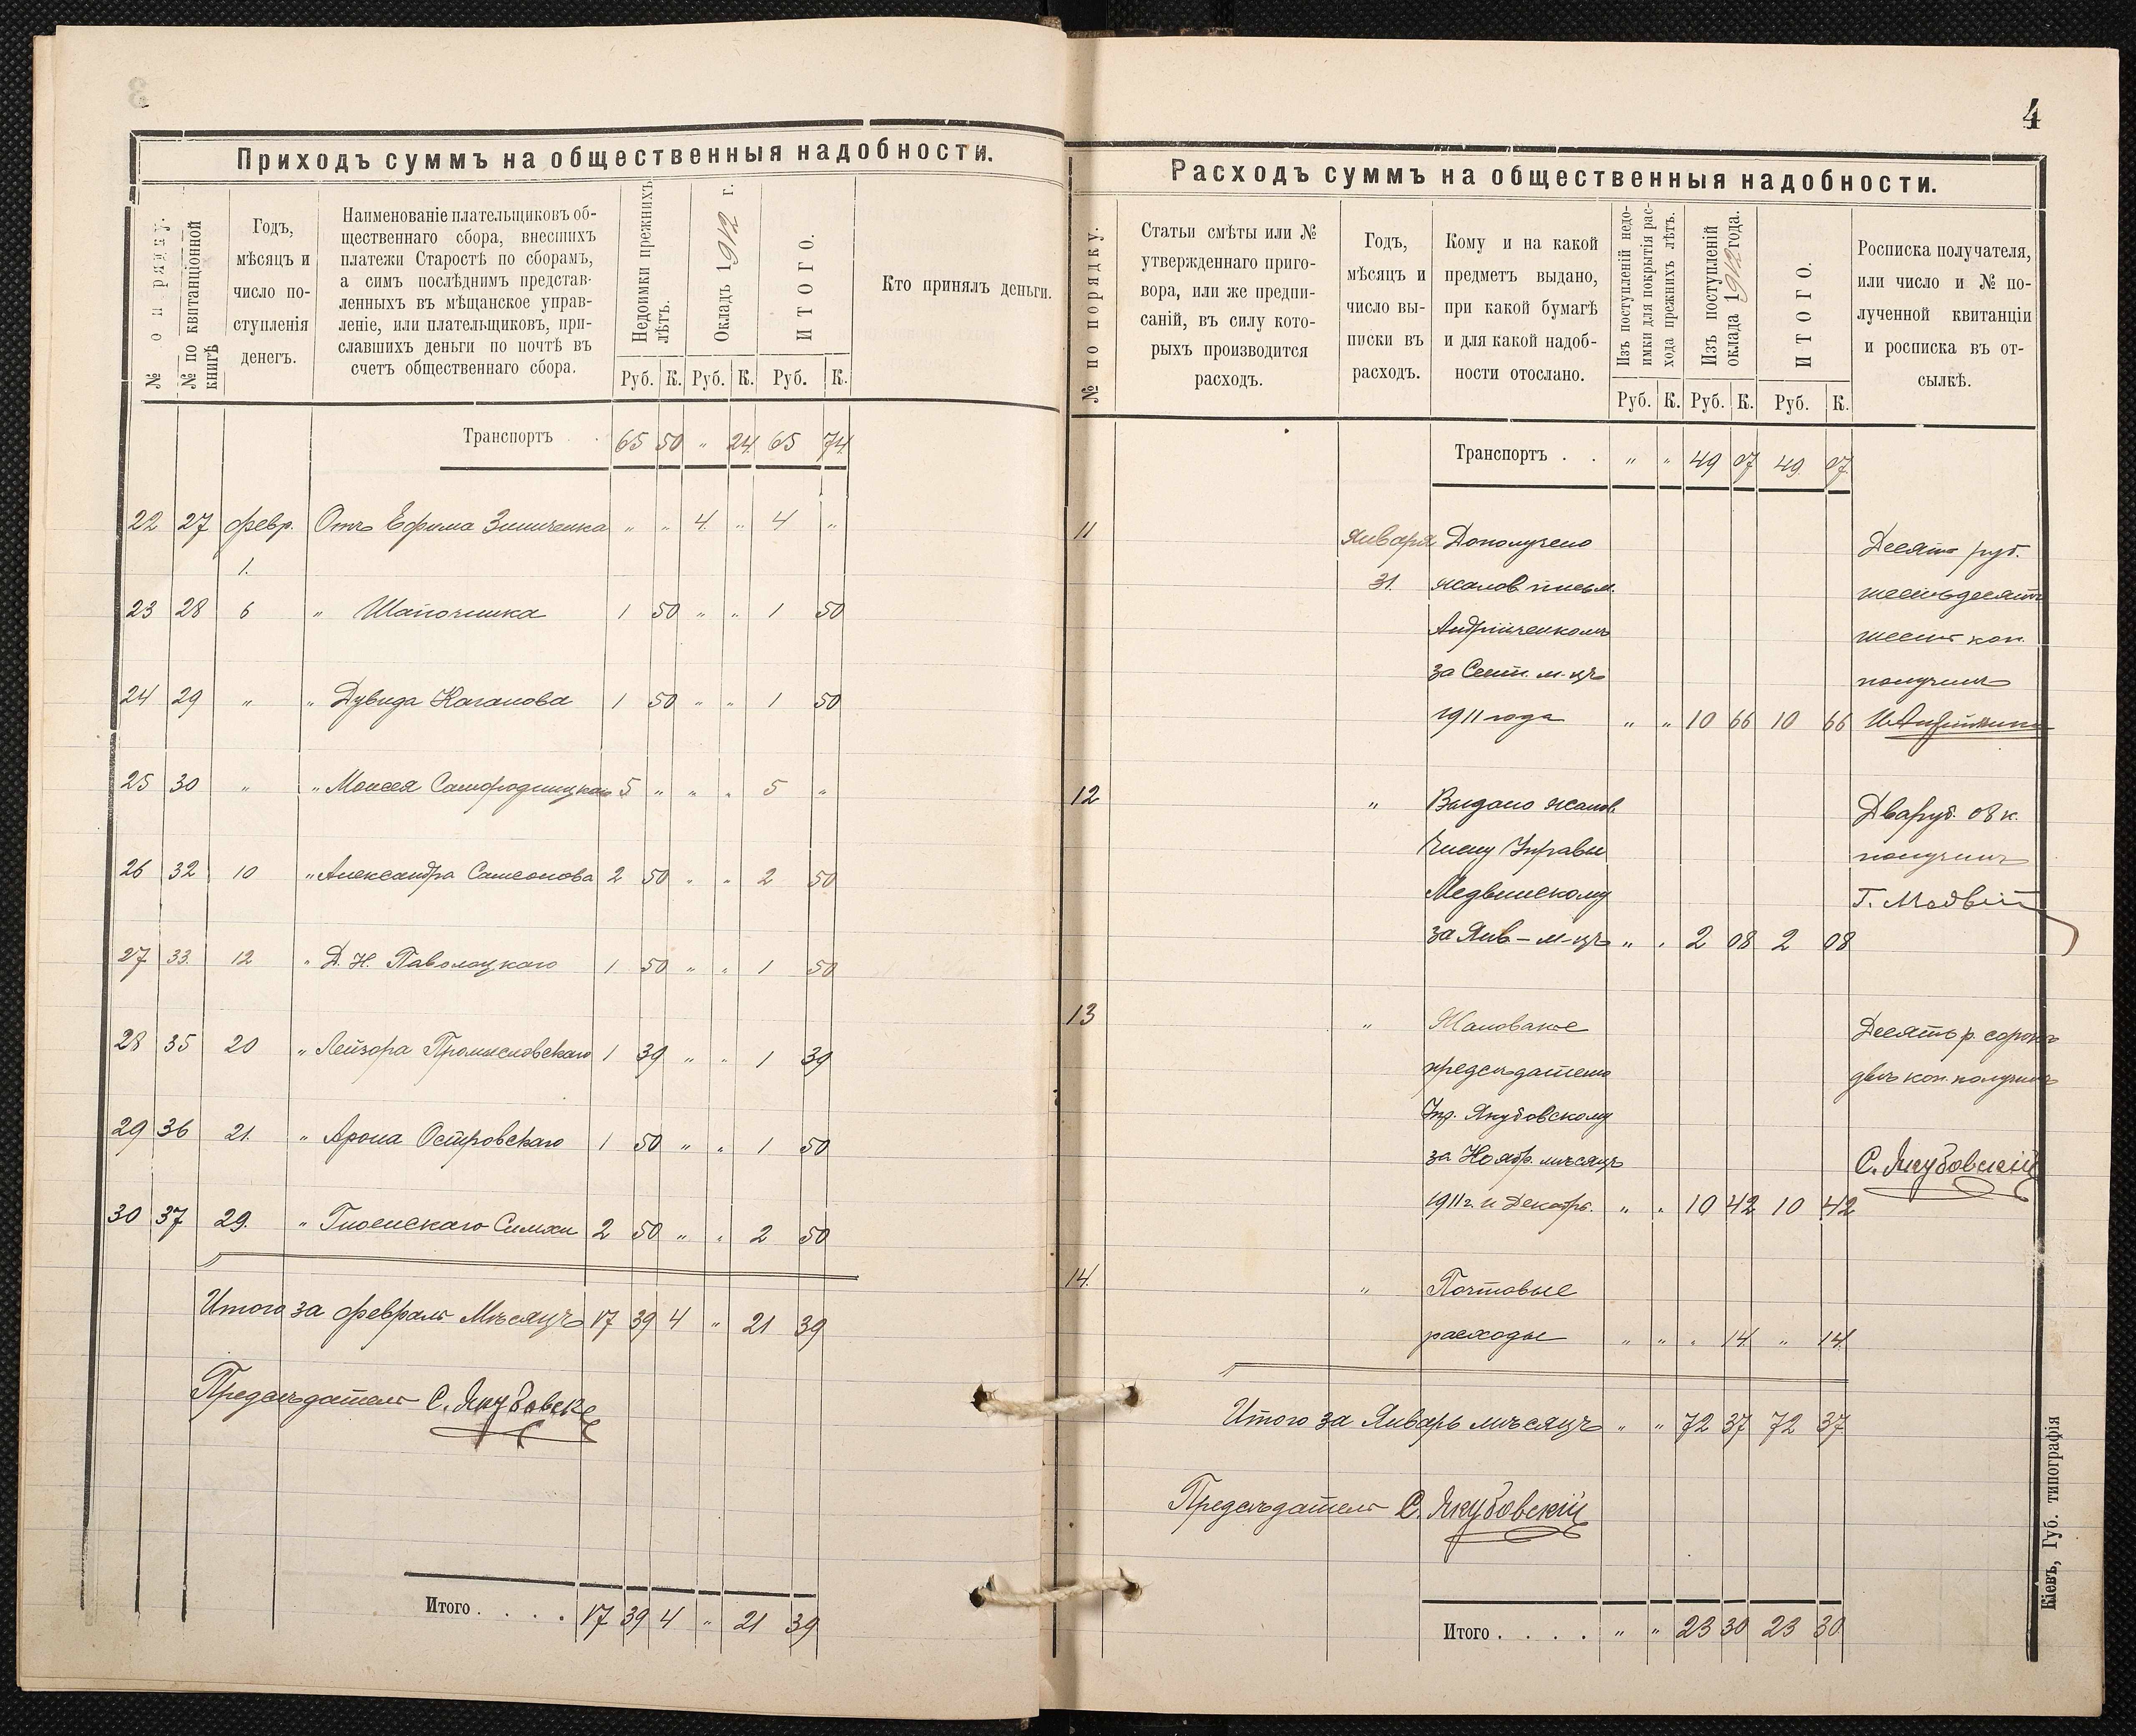 Приходъ суммъ на общественныя надобности.
№ по порядку.
№ по квитанціонной
книгѣ
Годъ,
мѣсяцъ и
число по-
ступленія
денегъ.
Наименованіе плательщиковъ об-
щественнаго сбора, внесшихъ
платежи Старостѣ по сборамъ,
а симъ послѣднимъ представ-
ленныхъ въ мѣщанское управ-
леніе, или плательщиковъ, при-
славшихъ деньги по почтѣ въ
счетъ общественнаго сбора.
Недоимки прежнихъ
лѣтъ.
Окладъ 1912 г.
ИТОГО.
Кто принялъ деньги.
Руб. К. Руб. К. Руб. К.
Транспортъ . . 65 50 " 24 65 74
22 27 февр. Отъ Ефима Зинченка " " 4 " 4 "
1.
23 28 6 " Шапочника 1 50 " " 1 50
24 29 " " Дувида Каганова 1 50 " " 1 50
25 30 " " Моисея 5 " " " 5 "
26 32 10 " Александра Самсонова 2 50 " " 2 50
27 33 12 " Д. Н. Паволоцкаго 1 50 " " 1 50
28 35 20 " Лейзора Промысловскаго 1 39 " " 1 39
29 36 21. " Арона Островскаго 1 50 " " 1 50
30 37 29. " Гноенскаго Симхи 2 50 " " 2 50
Итого за февраль Мѣсяцъ 17 39 4 " 21 39
Предсѣдатель С. Якубовскі
Итого . . . . 17 39 4 " 21 39
4
Расходъ суммъ на общественныя надобности.
№ по порядку.
Статьи смѣты или №
утвержденнаго приго-
вора, или же предпи-
саній, въ силу кото-
рыхъ производится
расходъ.
Годъ,
мѣсяцъ и
число вы-
писки въ
расходъ.
Кому и на какой
предметъ выдано,
при какой бумагѣ
и для какой надоб-
ности отослано.
Изъ поступленій недо-
имки для покрытія рас-
хода прежнихъ лѣтъ.
Изъ поступленій
оклада 1912 года.
ИТОГО.
Росписка получателя,
или число и № по-
лученной квитанціи
и росписка въ от-
сылкѣ.
Руб. К. Руб. К. Руб. К.
Транспортъ . . " " 49 07 49 07
11 Января Дополучено Десять руб.
31. жалов. письм. шестьдесятъ
Андрійченкомъ шесть коп.
за Сент. м-цъ получилъ
1911 года " " 10 66 10 66
12 " Выдано жалов. Два руб. 08 к.
Члену Управы получилъ
Медвинскому Г. Медвін
за Янв-м-цъ " " 2 08 2 08
13 " Жалованье Десять р. сорокъ
предсѣдателю двѣ коп. получилъ
Упр. Якубовскому
за Ноябр. мѣсяцъ С. Якубовскій
1911 г. и Декабрь. " " 10 42 10 42
14. " Почтовые
расходы " " " 14 " 14
Итого за Январь мѣсяцъ " " 72 37 72 37
Предсѣдатель С. Якубовскій
Итого . . . . " " 23 30 23 30
Кіевъ, Губ. типографія